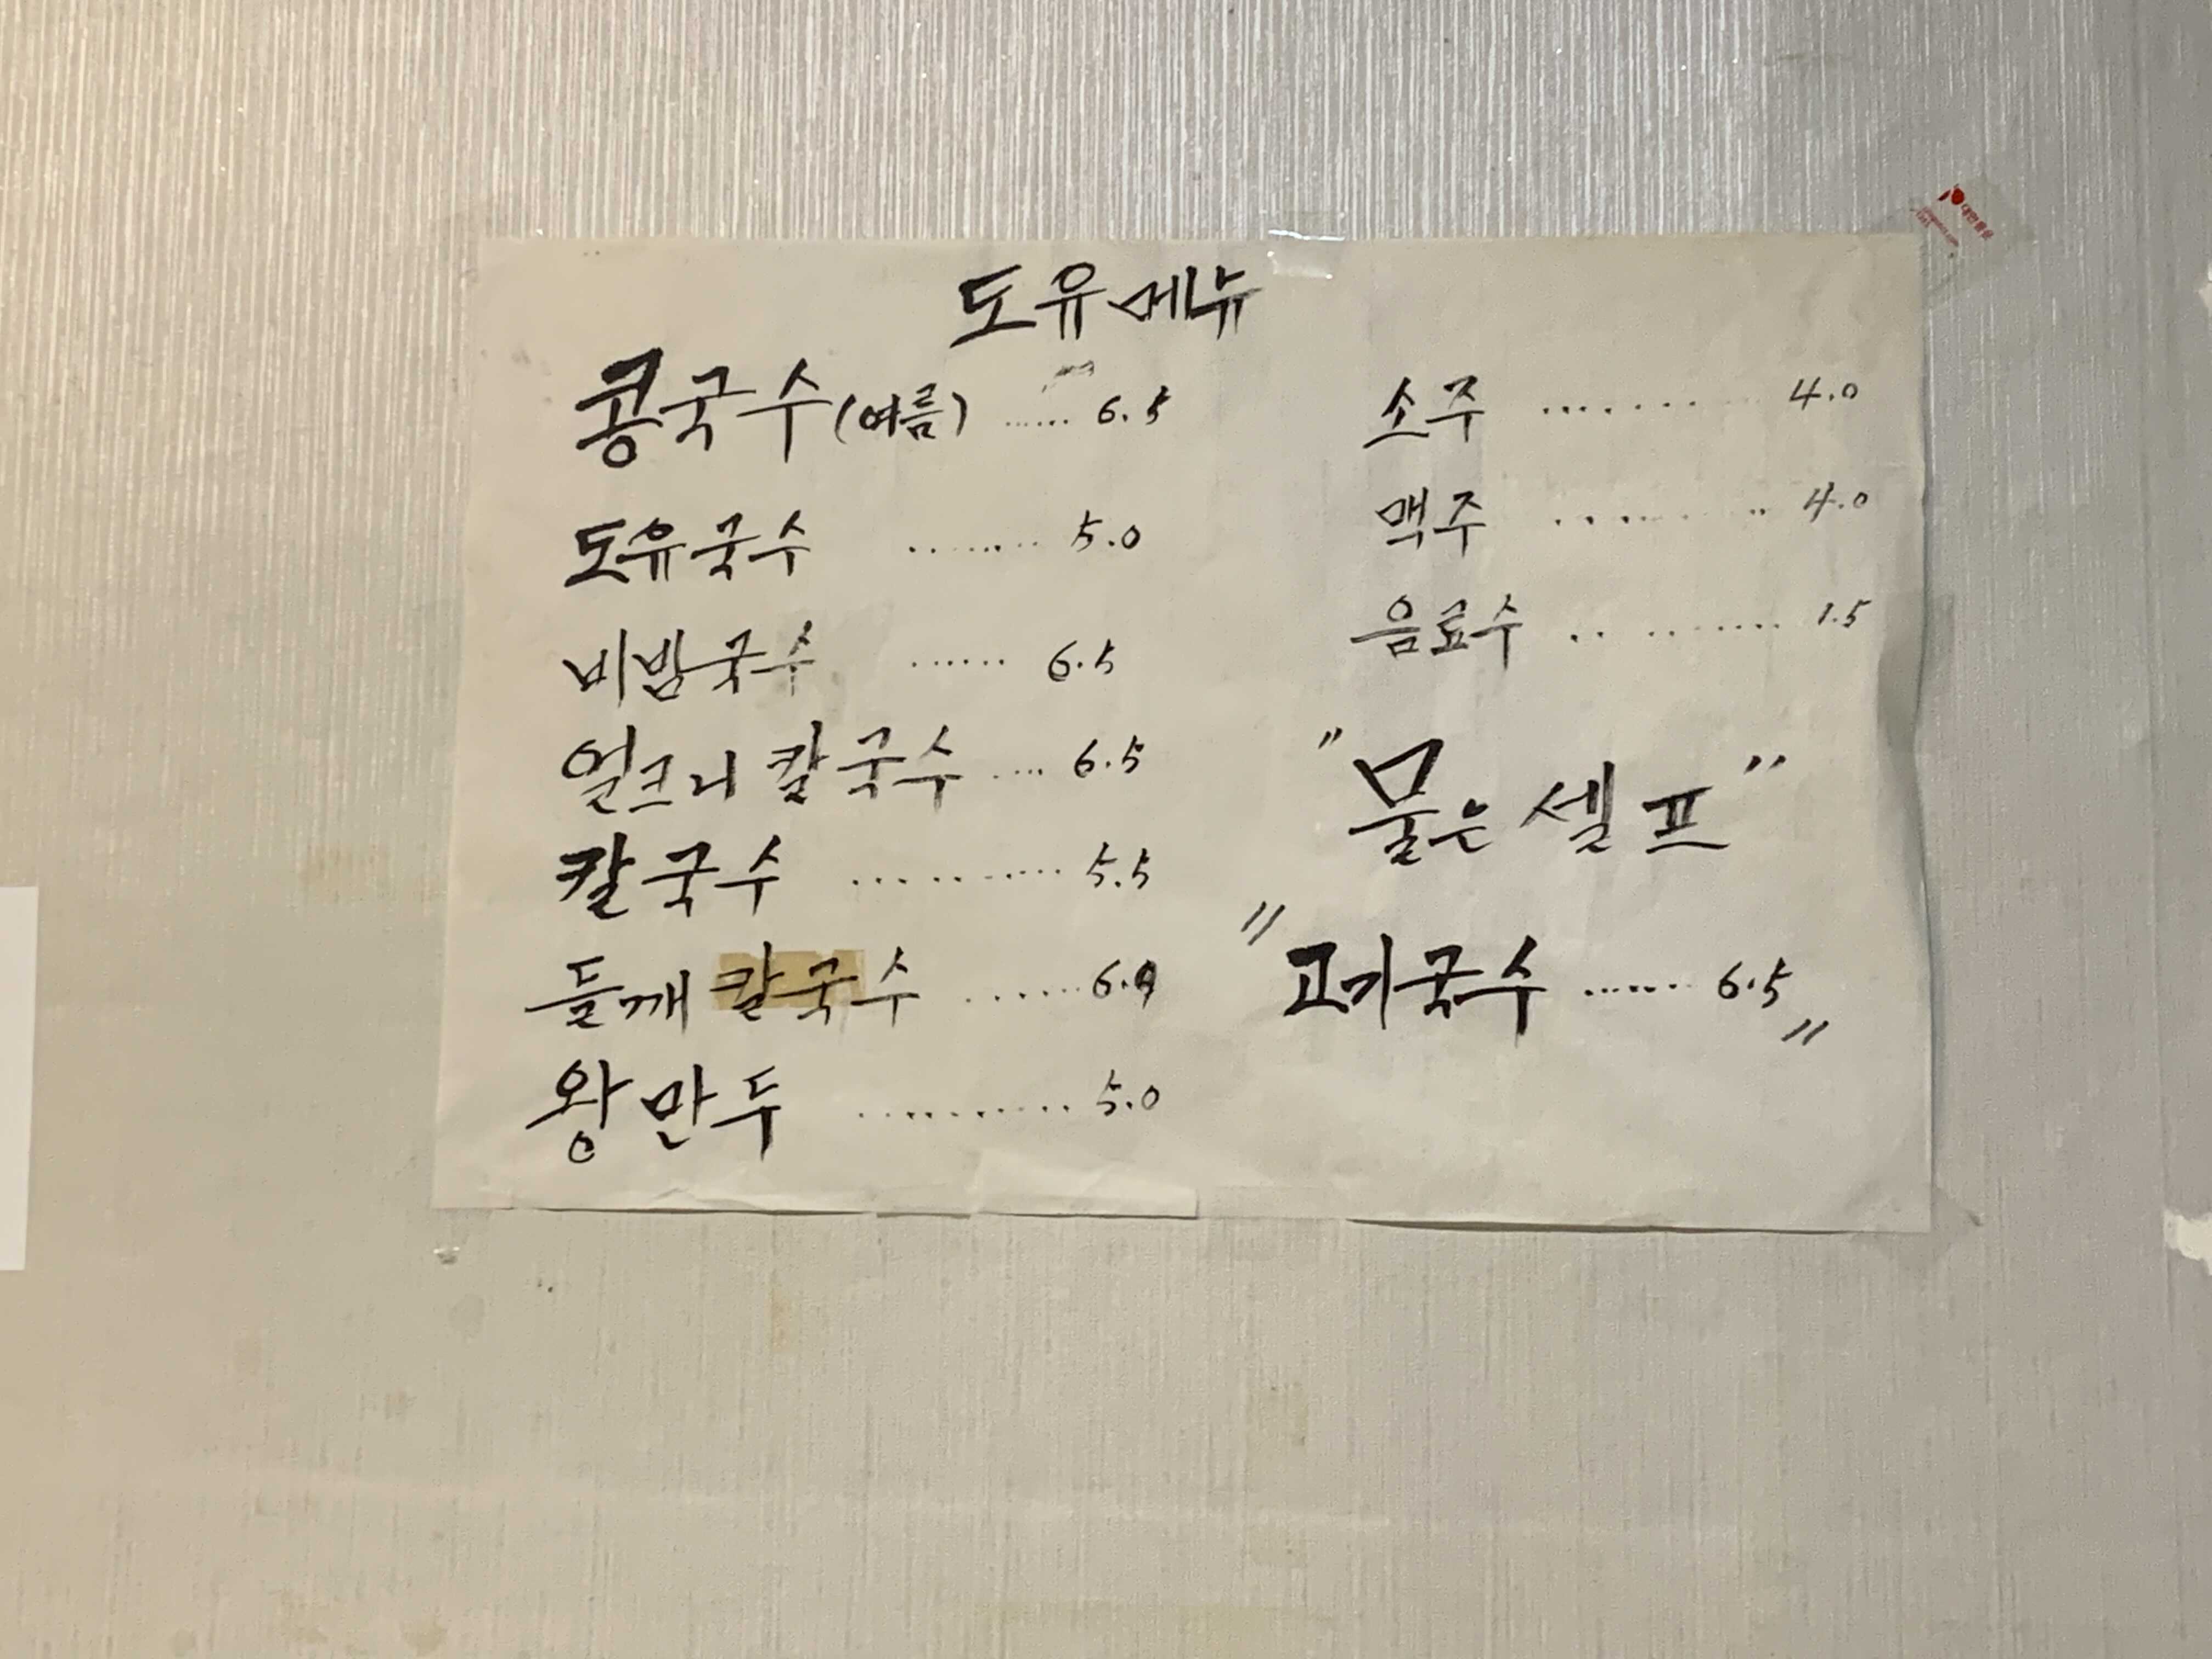 도유메뉴
콩국수(여름) ...... 6.5
도유국수 ........ 5.0
비빔국수 ...... 6.5
얼크니 칼국수 .... 6.5
칼국수 .......... 5.5
들깨 칼국수 ......
왕만두 ........... 5.0
소주 ......... 4.0
맥주 ......... 4.0
음료수 ......... 1.5
"물은 셀프"
"고기국수 ...... 6.5"